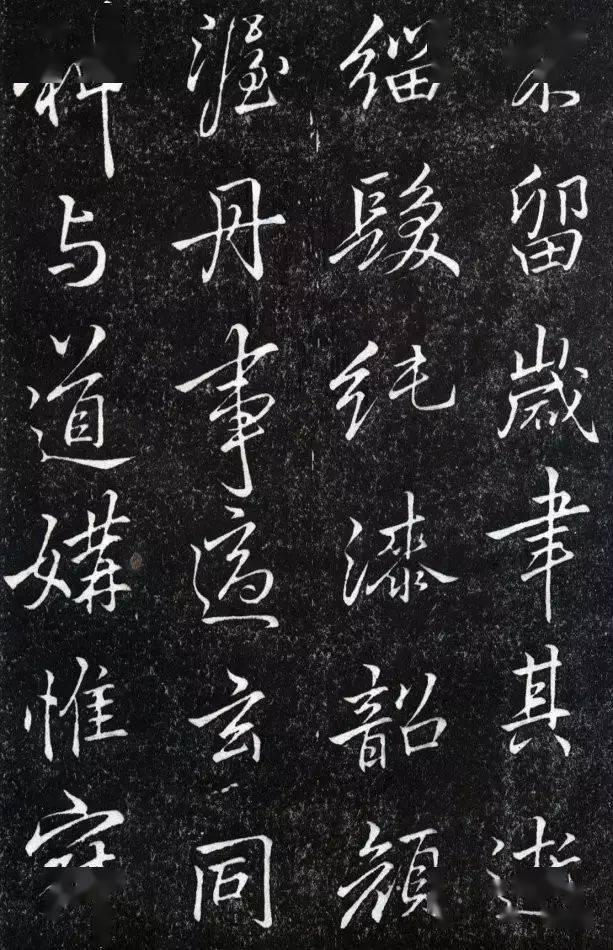 留歲聿其
緇髮純漆韶顔
渥丹事適玄同
与道媾惟